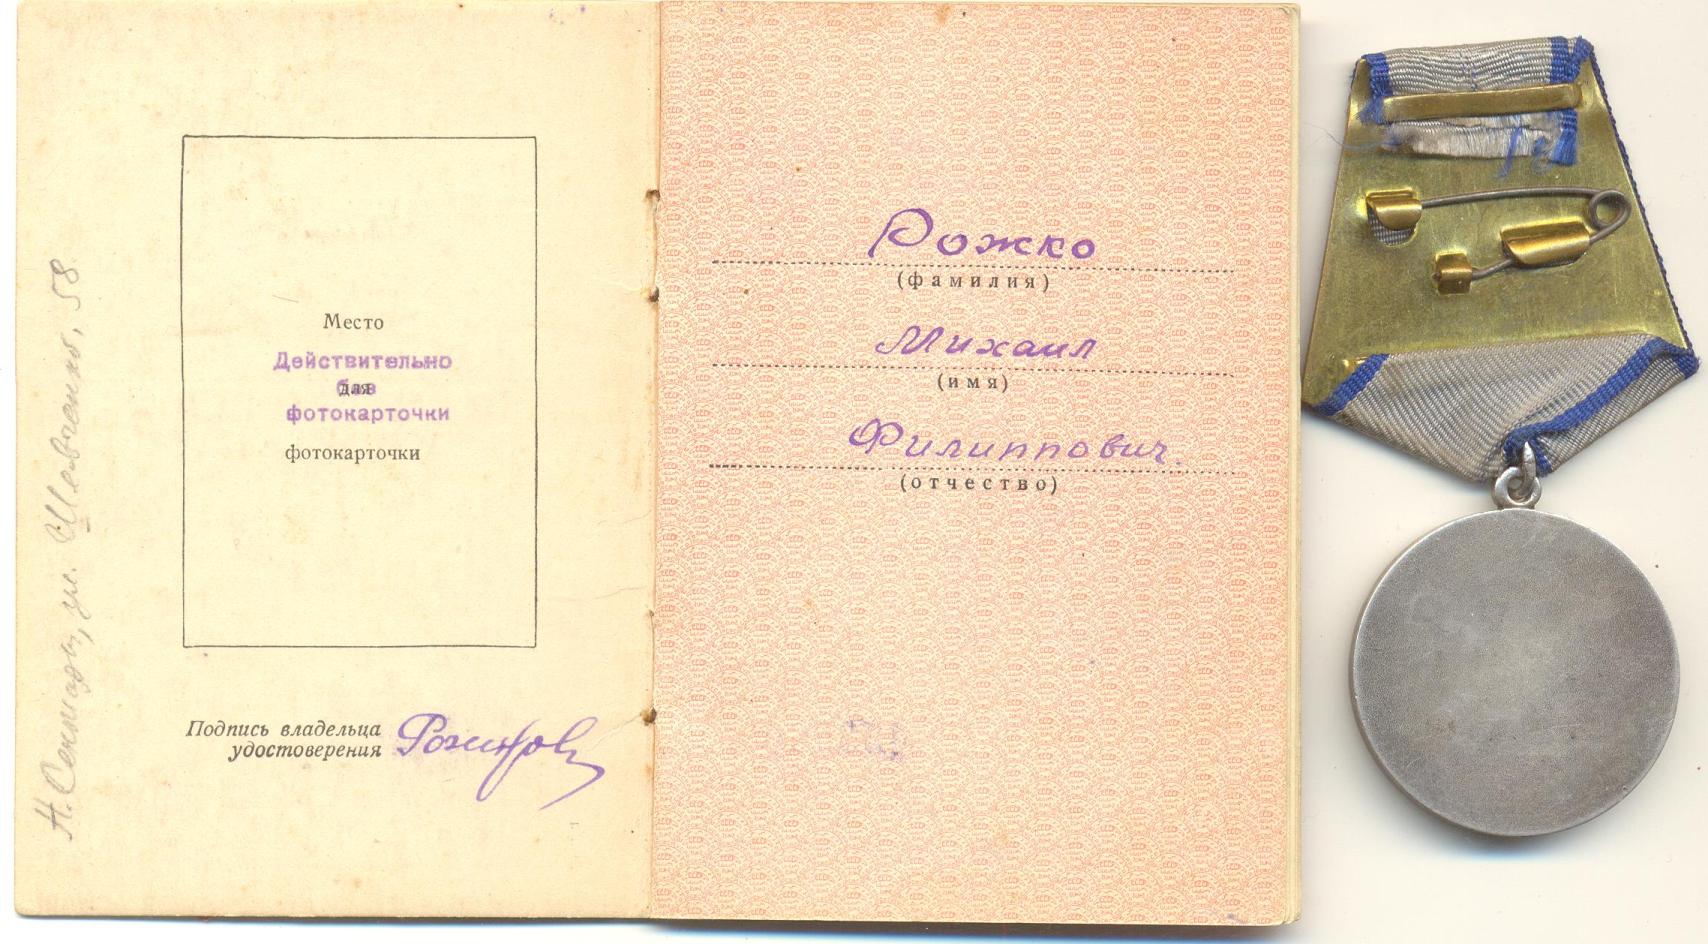 Н. Сенжары, ул. Шевченко, 58
Место
Действительно
без
для
фотокарточки
фотокарточки
Подпись владельца
удостоверения
Рожко
(фамилия)
Михаил
(имя)
Филиппович.
(отчество)